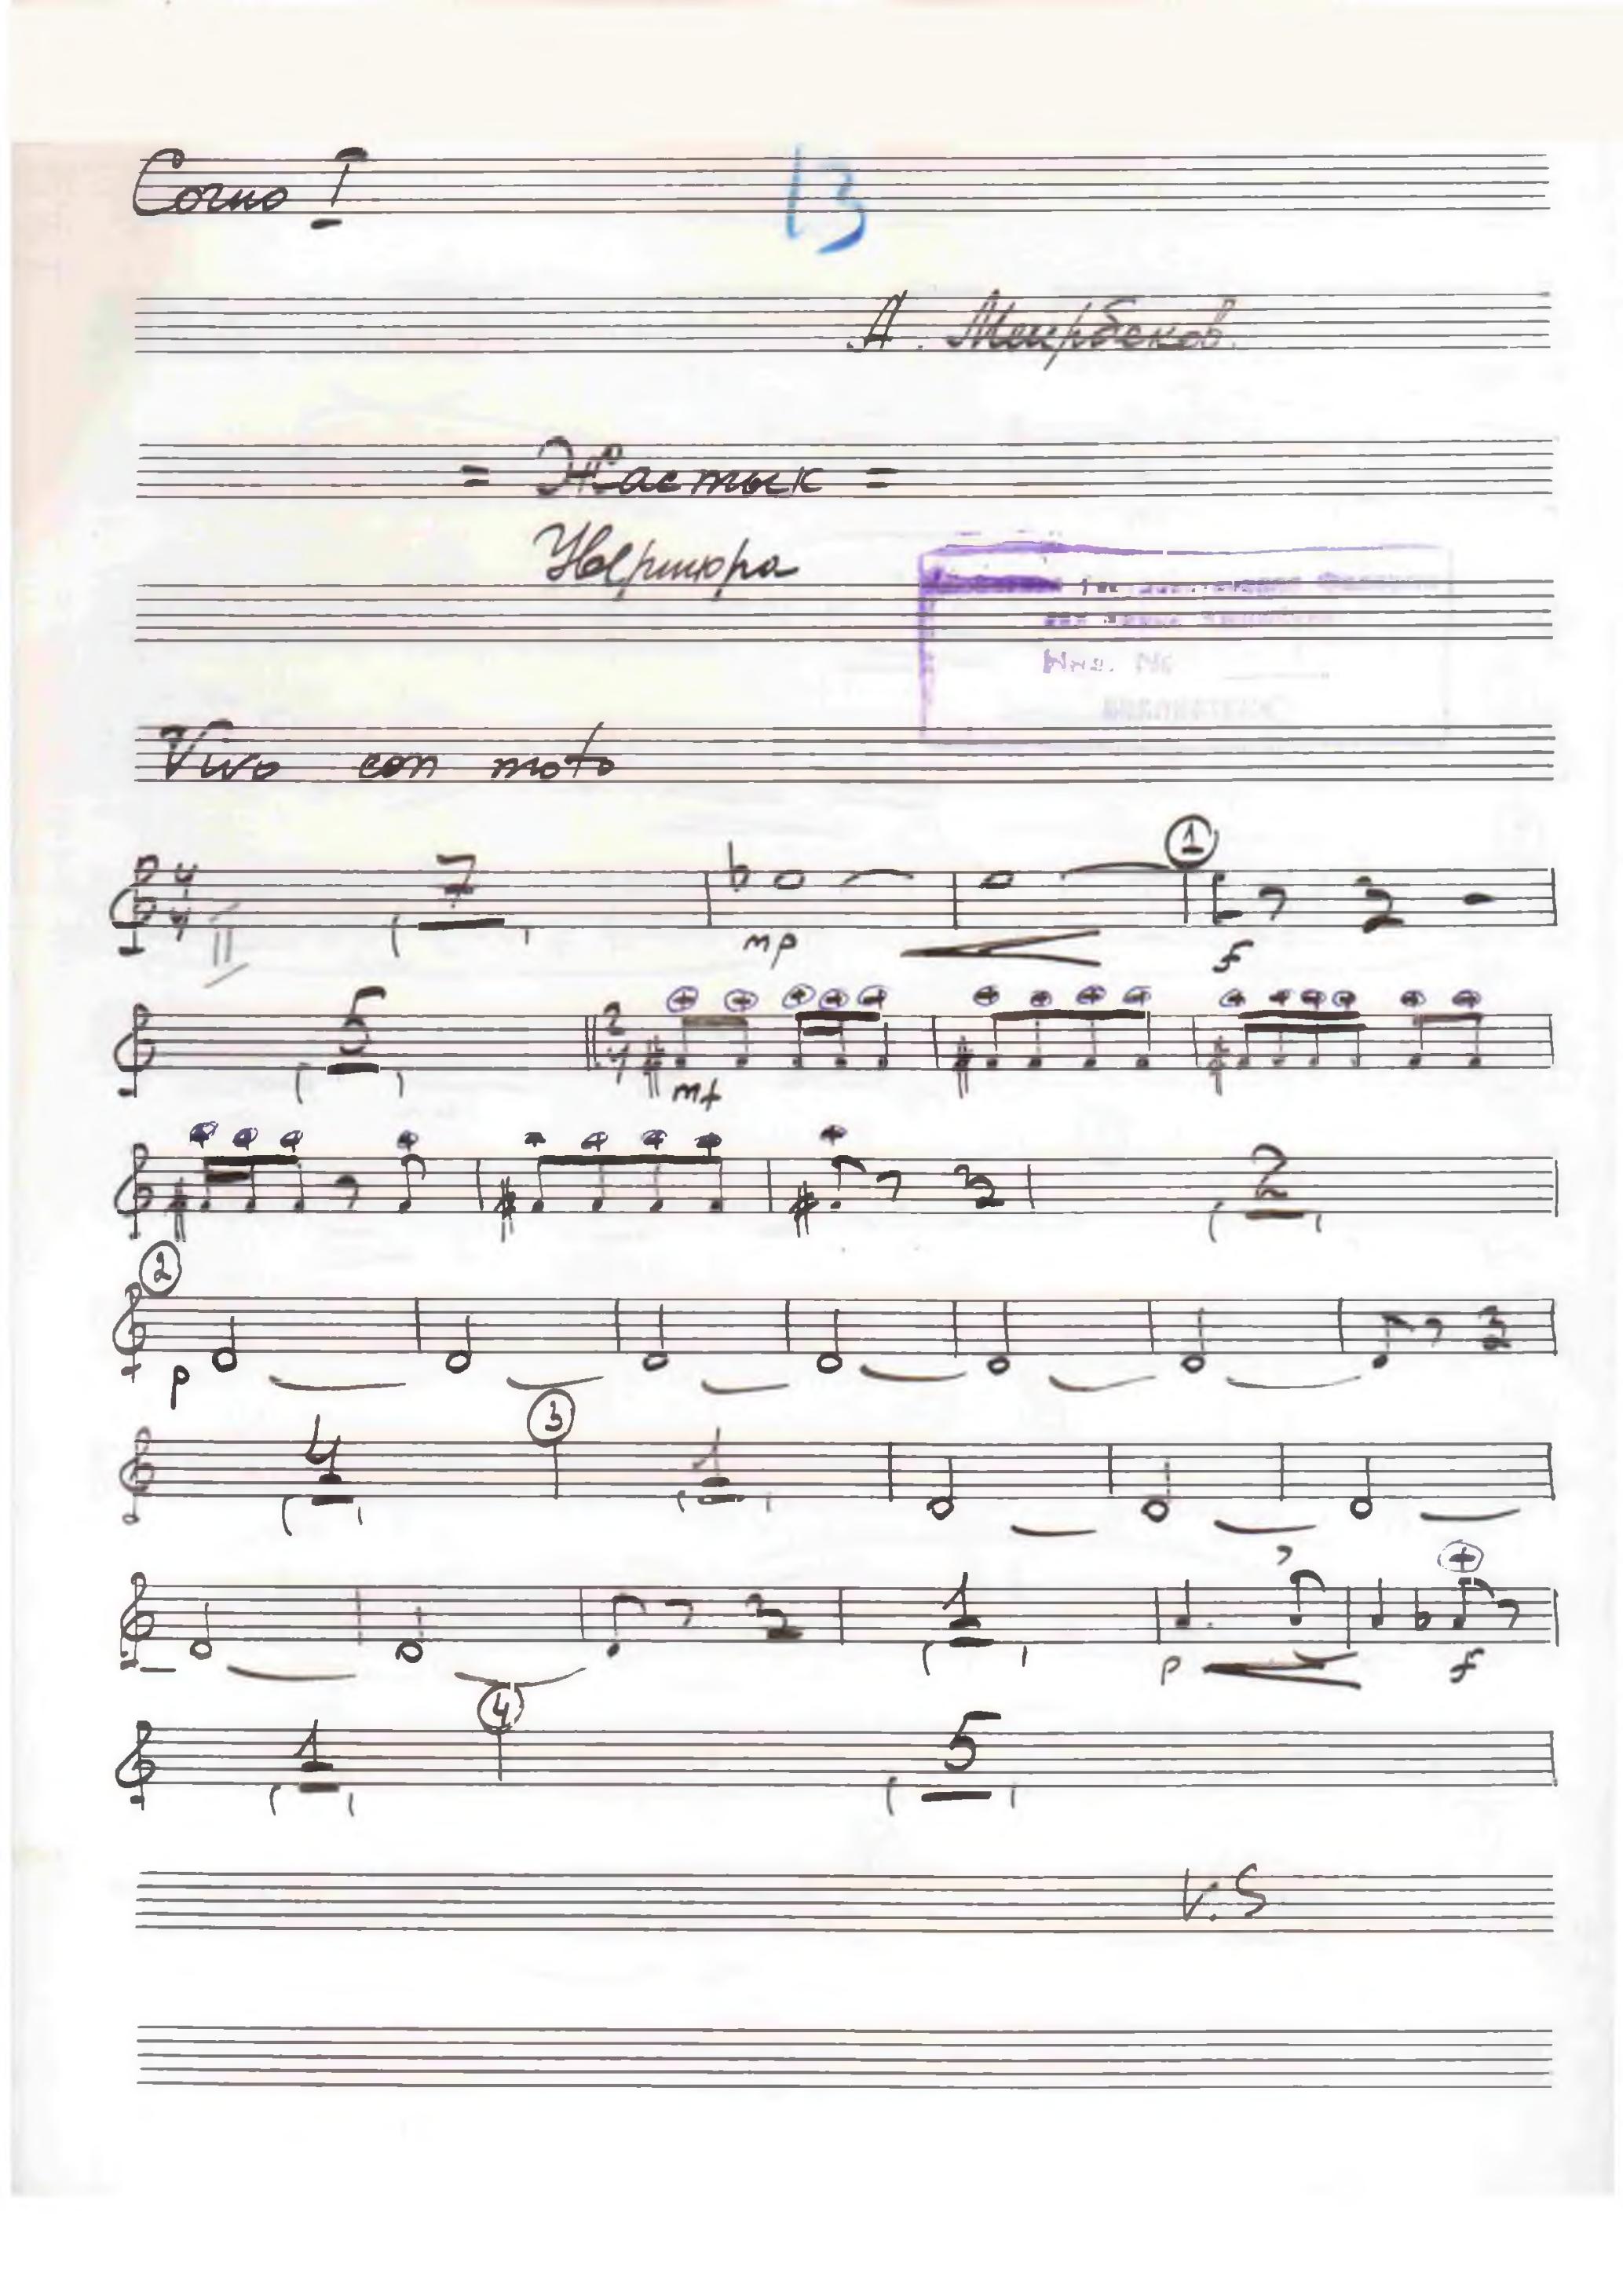 Corno I
13
А. Меирбеков.
= Жастык =
Увертюра
Vivo con moto
7
1
mp
f
5
mf
2
2
p
4
3
1
1
p
f
1
4
5
V.S